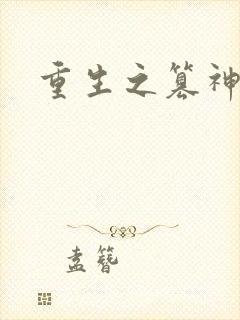 重生之篡神
孟簪